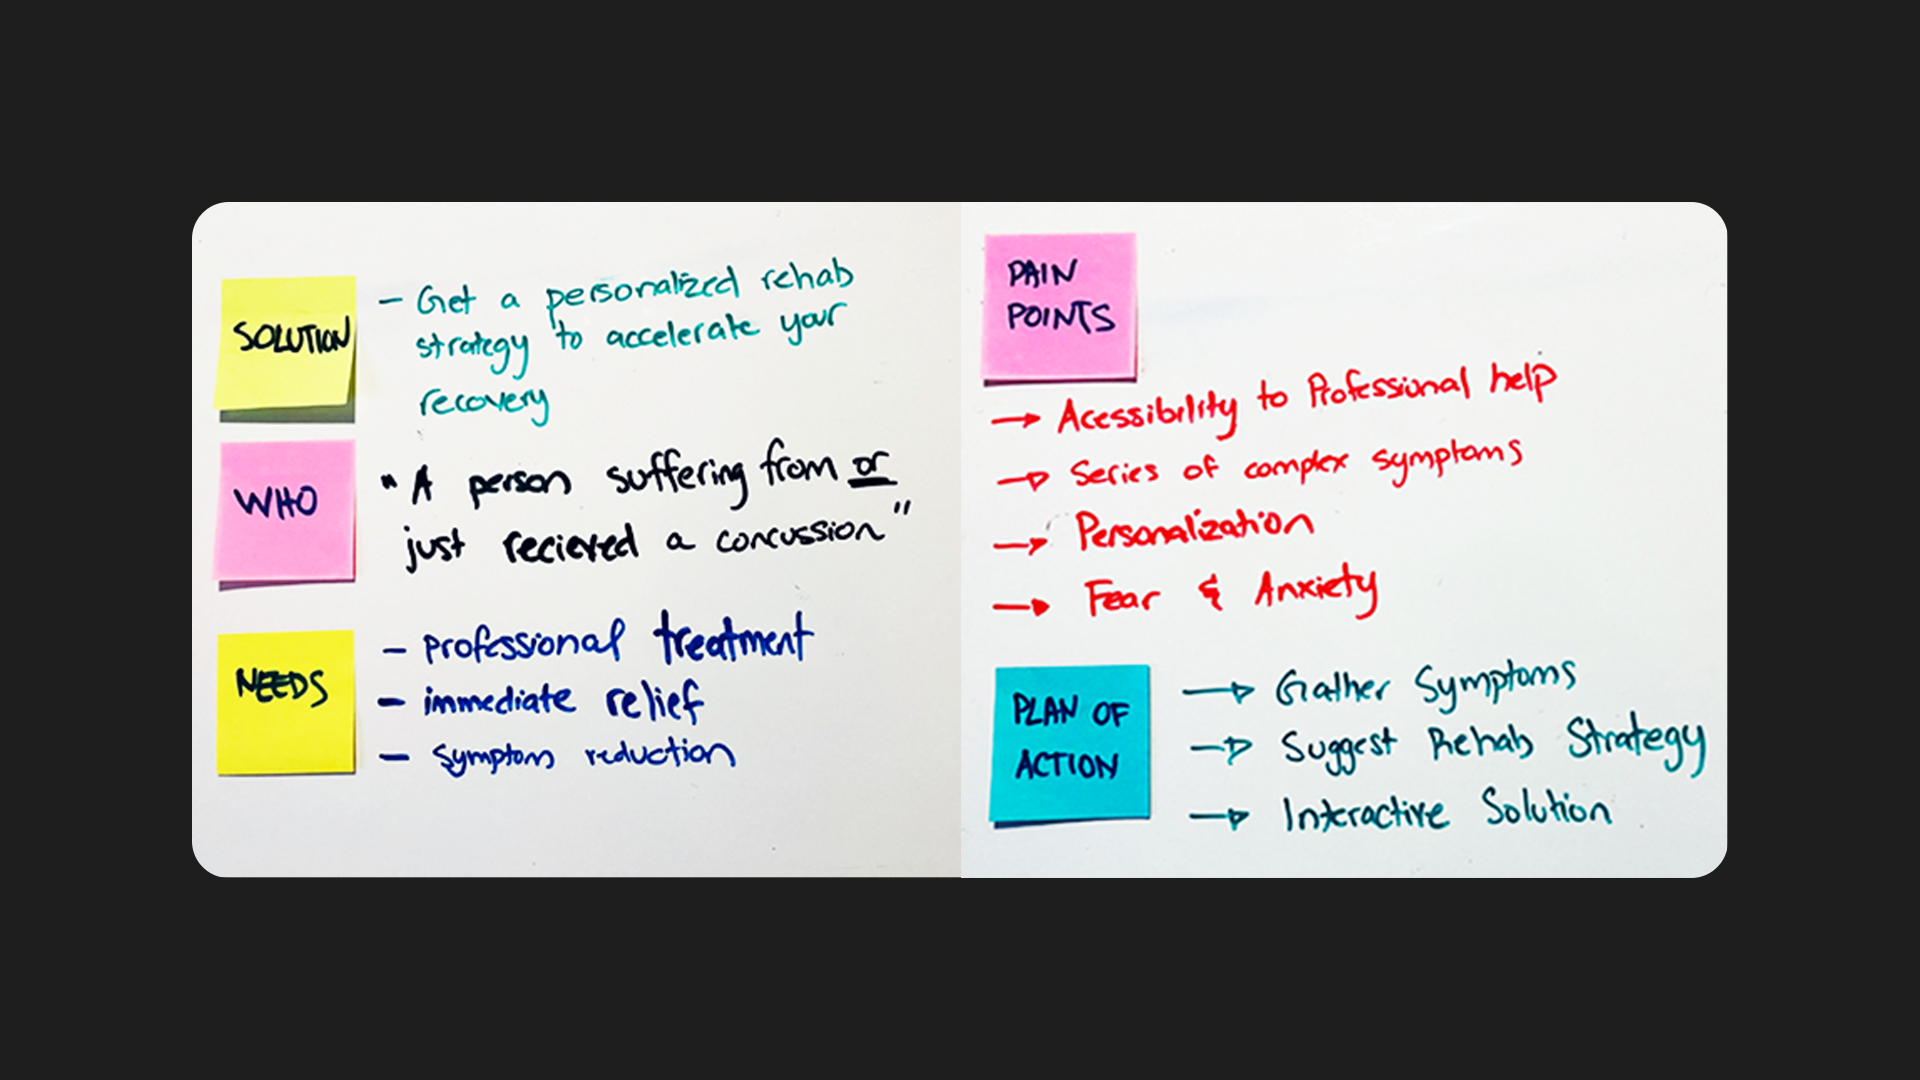 SOLUTION
- Get a personalized rehab
strategy to accelerate your
recovery
WHO
"A person suffering from or
just recieved a concussion"
NEEDS
- professional treatment
- immediate relief
- symptom reduction
PAIN
POINTS
→ Acessibility to Professional help
→ Series of complex symptoms
→ Personalization
→ Fear & Anxiety
PLAN OF
ACTION
→ Gather Symptoms
→ Suggest Rehab Strategy
→ Interactive Solution